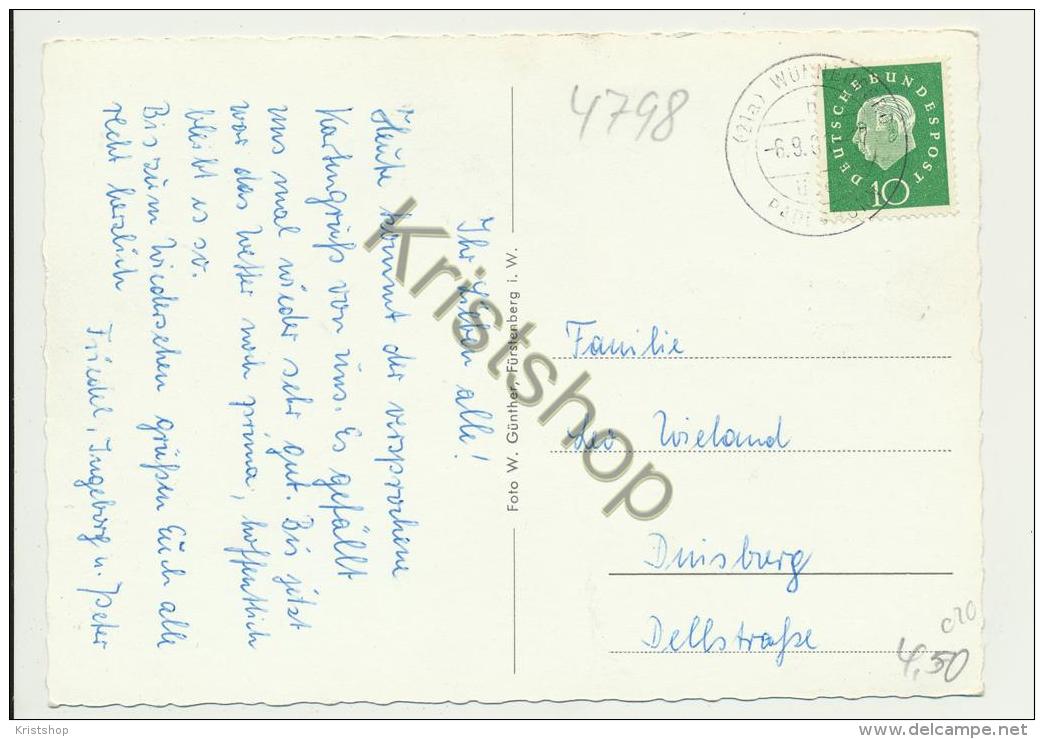 Ihr Lieben alle!
Heute kommt der versprochene
Kartengruß von uns. Es gefällt
uns mal wieder sehr gut. Bis jetzt
war das Wetter noch prima, hoffentlich
bleibt es so.
Bis zum Wiedersehen grüßen Euch alle
recht herzlich
Friedel, Ingeborg u. Peter
Foto W. Günther, Fürstenberg i. W.
4798
(21a) WÜNNE
-6.9.6
DEUTSCHE BUNDESPOST
10
Familie
Leo Wieland
Duisburg
Dellstraße
c20
4,50
Kristshop
Kristshop
www.delcampe.net